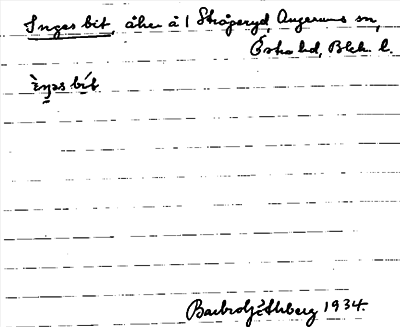 Inges bit, åker å 1 Stråperyd, Asarums sn,
Östra hd, Blek. l.
ìŋəs bít
Barbro Ahlberg 1934.